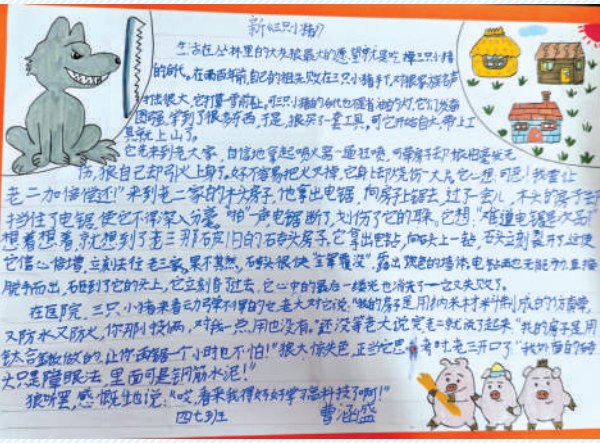 新《三只小猪》
生活在丛林里的大灰狼最大的愿望就是吃掉三只小猪
的后代。在两百年前,自己的祖先败在三只小猪手下,对狼家族名声
打击很大,它打算一雪前耻。可三只小猪的后代也
图强,学到了很多东西,于是,狼买了一套工具,可它开始自大,带上工
具就上山了。
它先来到老大家,自信地拿起喷火器一通狂喷,可草房子却依旧毫发无
伤,狼自己却引火上身了。好不容易把火灭掉,它身上却烧伤一大片,它想,可恶!我要让
老二加倍偿还!”来到老二家的木头房子,他拿出电锯,向房子上锯去,过了一会儿,木头的房子却
挡住了电锯,使它不得深入分毫。“啪”一声,电锯断了,划伤了它的耳朵。它想:“难道电锯是次品?”
想着想着,就想到了老三那破旧的石头房子,它拿出电钻,向石头上一钻,石头立刻裂开了,这使
它信心倍增,立刻去往老三家。果不其然,石头很快“全军覆没”,露出银色的墙体,电钻再也无能为力,直接
脱手而出,砸到了它的头上,它立刻昏了过去,它心中的最后一缕光也消失了——它又失败了。
在医院,三只小猪来看动弹不得的它,老大对它说:“我的房子是用纳米材料制成的仿真草,
又防水又防火,你那小技俩,对我一点用也没有。”还没等老大说完,老二就说了起来:“我的房子是用
钛合金做的,让你再锯一个小时也不怕!”狼大惊失色,正当它思考时,老三开口了:“我外面的砖
头只是障眼法,里面可是钢筋水泥!”
狼听罢,感慨地说:“哎,看来我得好好学习高科技了啊!”
四七班 曹涵盛